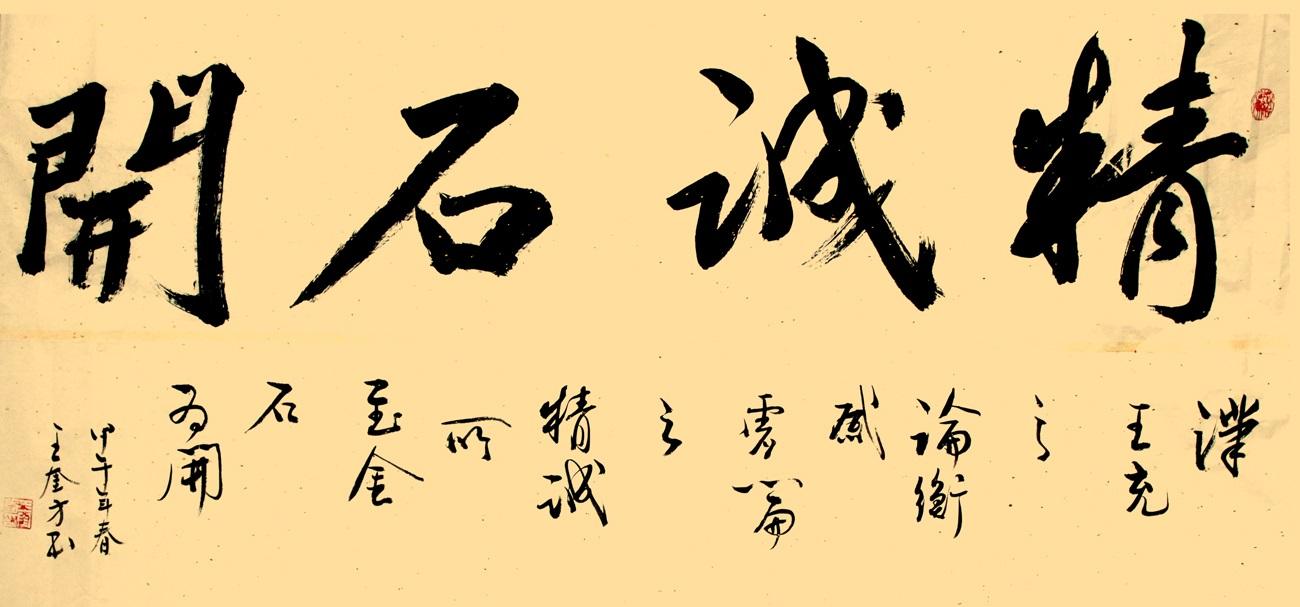 精誠石開
漢
王充
之
論衡
感
虛篇
之
精誠
所
至金
石
為開
甲午年春
王奎方